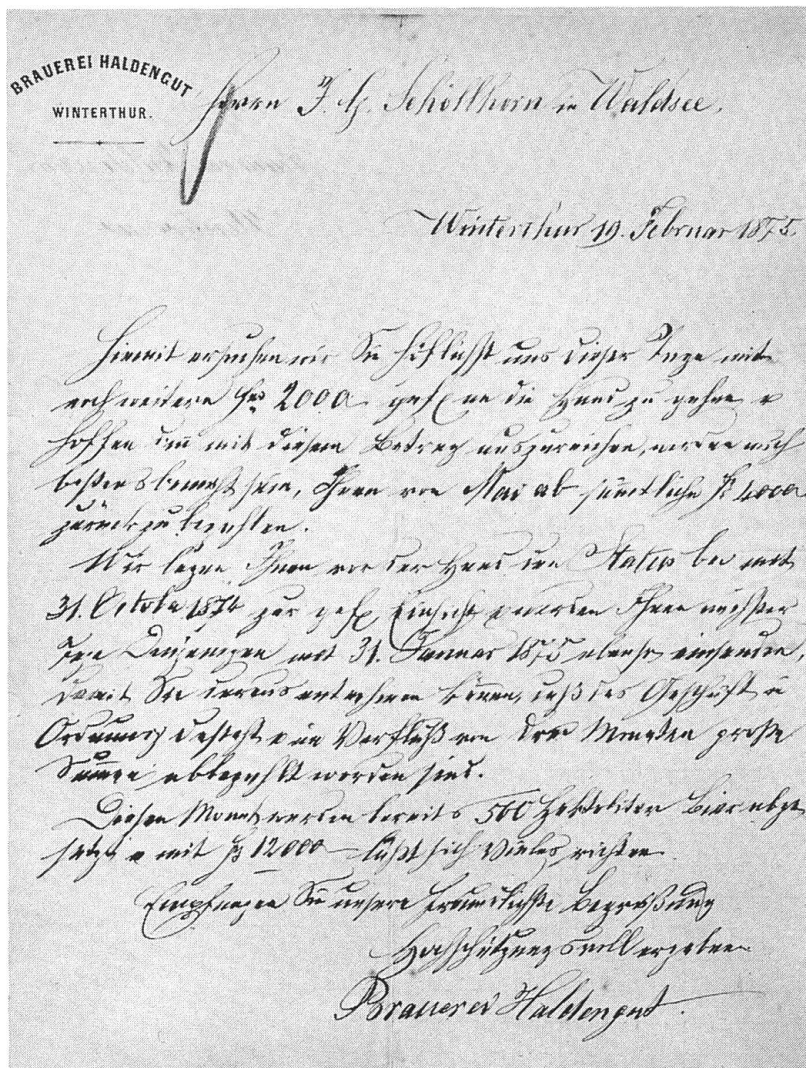 BRAUEREI HALDENGUT
WINTERTHUR.
Herrn J. G. Schöllhorn in Waldsee.
Winterthur 19. Februar 1875.
Hiemit ersuchen wir Sie höflichst uns dieser Tage mit
noch weitere frs 2000 gefl an die Hand zu gehen, u
hoffen dann mit diesem Betrag auszureichen, werden auch
bestens bemüht sein, Ihnen von Mai ab sämtliche fr 4000
zurückzubezahlen.
Wir legen Ihnen vor der Hand den Status bei mit
31. October 1874 zur gefl Einsicht u werden Ihnen nächster
Tage Denjenigen mit 31. Januar 1875 ebenso einsenden,
damit Sie daraus entnehmen können, daß das Geschäft in
Ordnung besteht u im Verfluß von drei Monaten große
Summen abbezahlt worden sind.
Diesen Monat werden bereits 500 Hektoliter Bier abge
setzt u mit fr 12000 läßt sich Vieles richten
Empfangen Sie unsere freundlichste Begrüßung
Hochschätzungsvoll ergeben
Brauerei Haldengut.